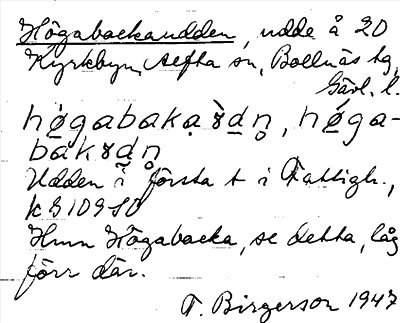 Högabackaudden, udde å 20
Kyrkbyn, Alfta sn, Bollnäs tg,
Gävl. l.
högabakaɤdn̥, höga-
bakɤdn̥
Udden i första t i Fattigh.,
k S109 SO
Hmn Högabacka, se detta, låg
förr där.
T. Birgerson 1947